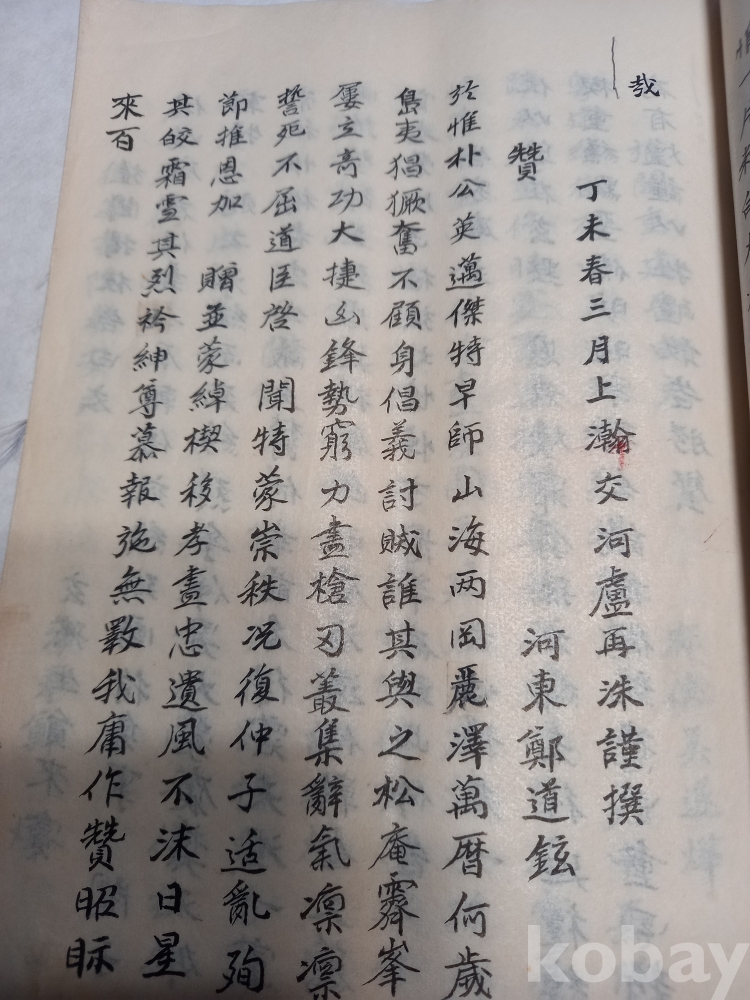 哉
丁未春三月上瀚交河盧再洙謹撰
贊 河東鄭道鉉
於惟朴公英邁傑特早師山海两岡麗澤萬曆何歲
島夷猖獗奮不顧身倡義討賊誰其與之松庵霽峯
屢立奇功大捷凶鋒勢窮力盡槍刃叢集辭氣凛凛
誓死不屈道臣啓 聞特蒙崇秩况復仲子适亂殉
節推恩加 贈並蒙綽楔移孝盡忠遺風不沫日星
其皎霜雪其烈衿紳尊慕報施無斁我庸作贊昭眎
來百
kobay